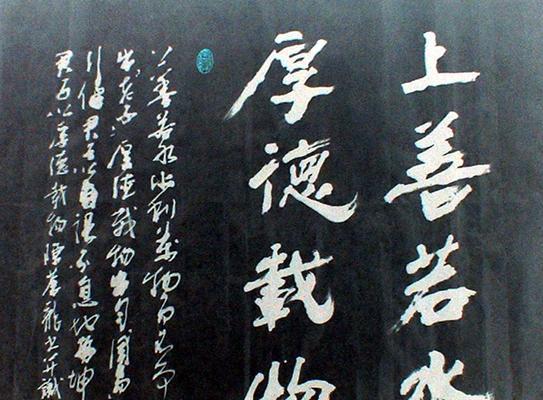 上善若水
厚德載物
上善若水 利萬物而不爭
出老子 厚德載物出自周易
君子以自强不息地势坤
君子以厚德載物 龍书并識